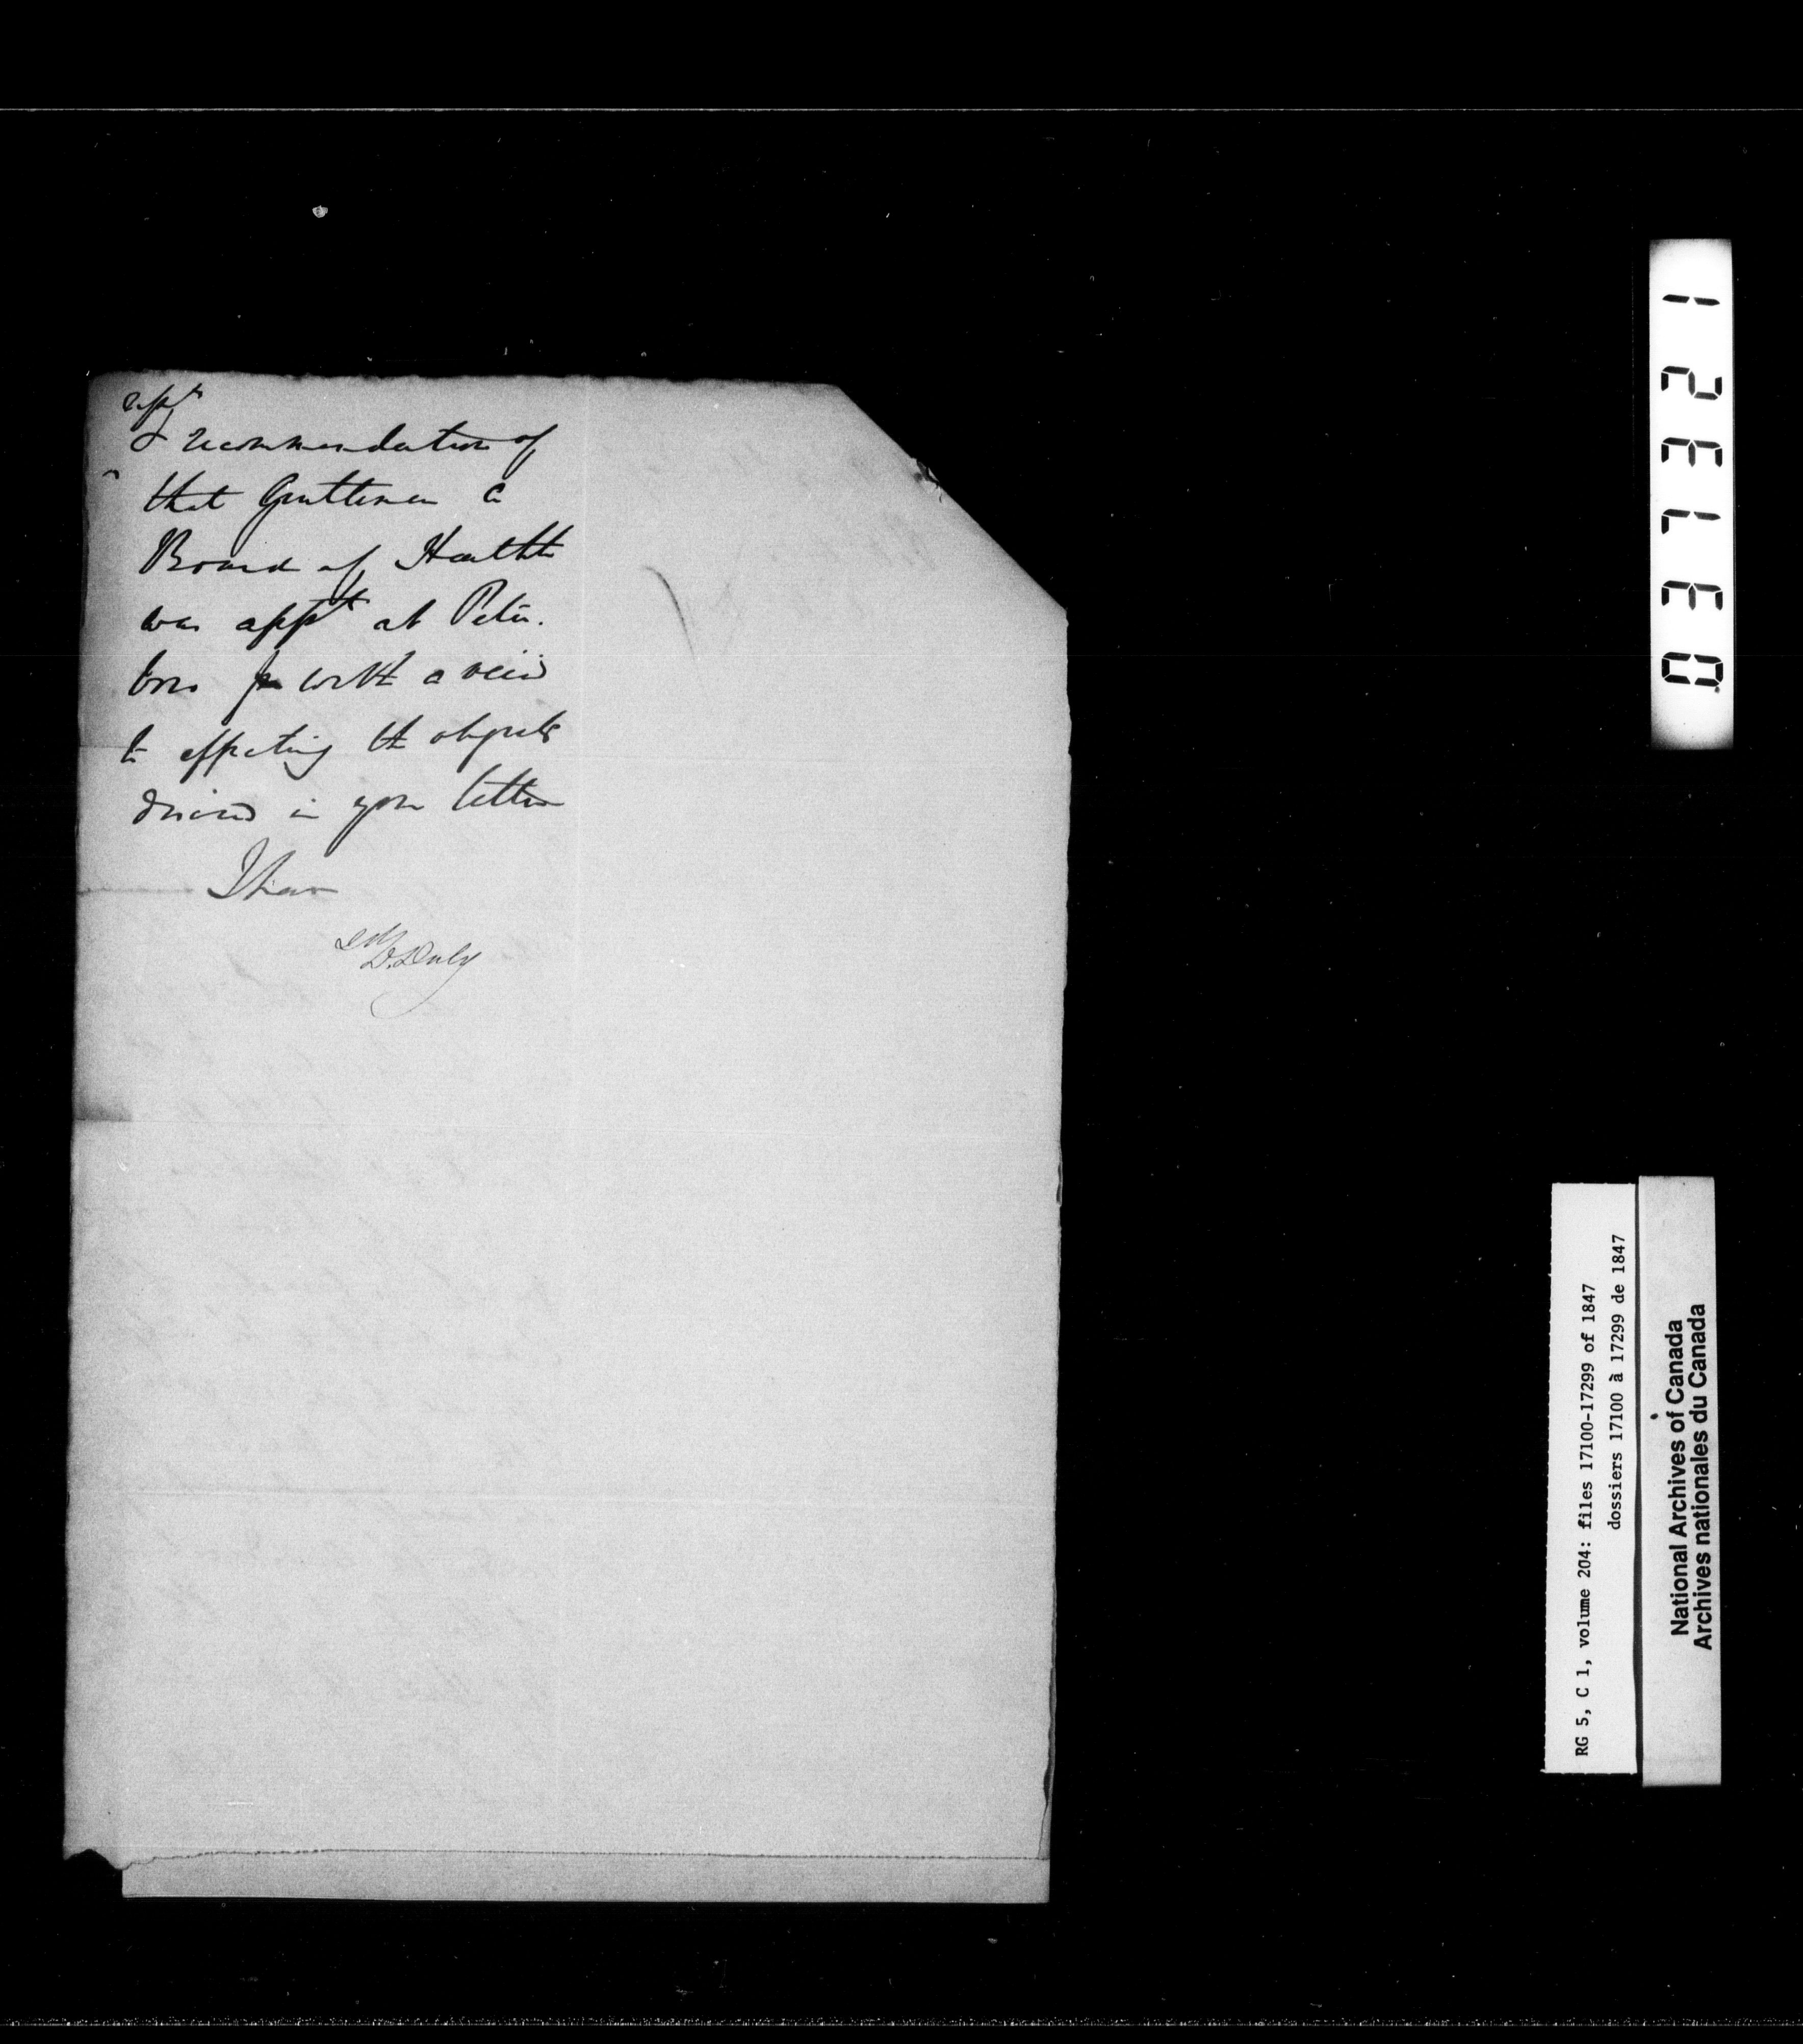 appt
& recommendation of
that Gentleman a
Board of Health
was appt at Peter-
boro with a view
to effecting the objects
desired in your letter
I have
D. Daly
123730
RG 5, C 1, volume 204: files 17100-17299 of 1847
dossiers 17100 à 17299 de 1847
National Archives of Canada
Archives nationales du Canada